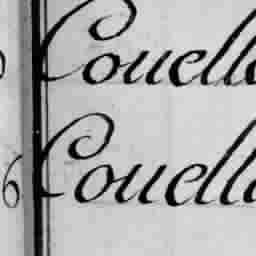 Couelle
6 Couelle